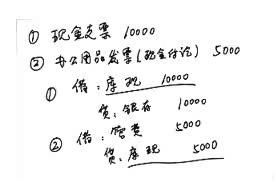 ① 现金支票 10000
② 办公用品发票(现金付讫) 5000
① 借:库现 10000
贷:银存 10000
② 借:管费 5000
贷:库现 5000